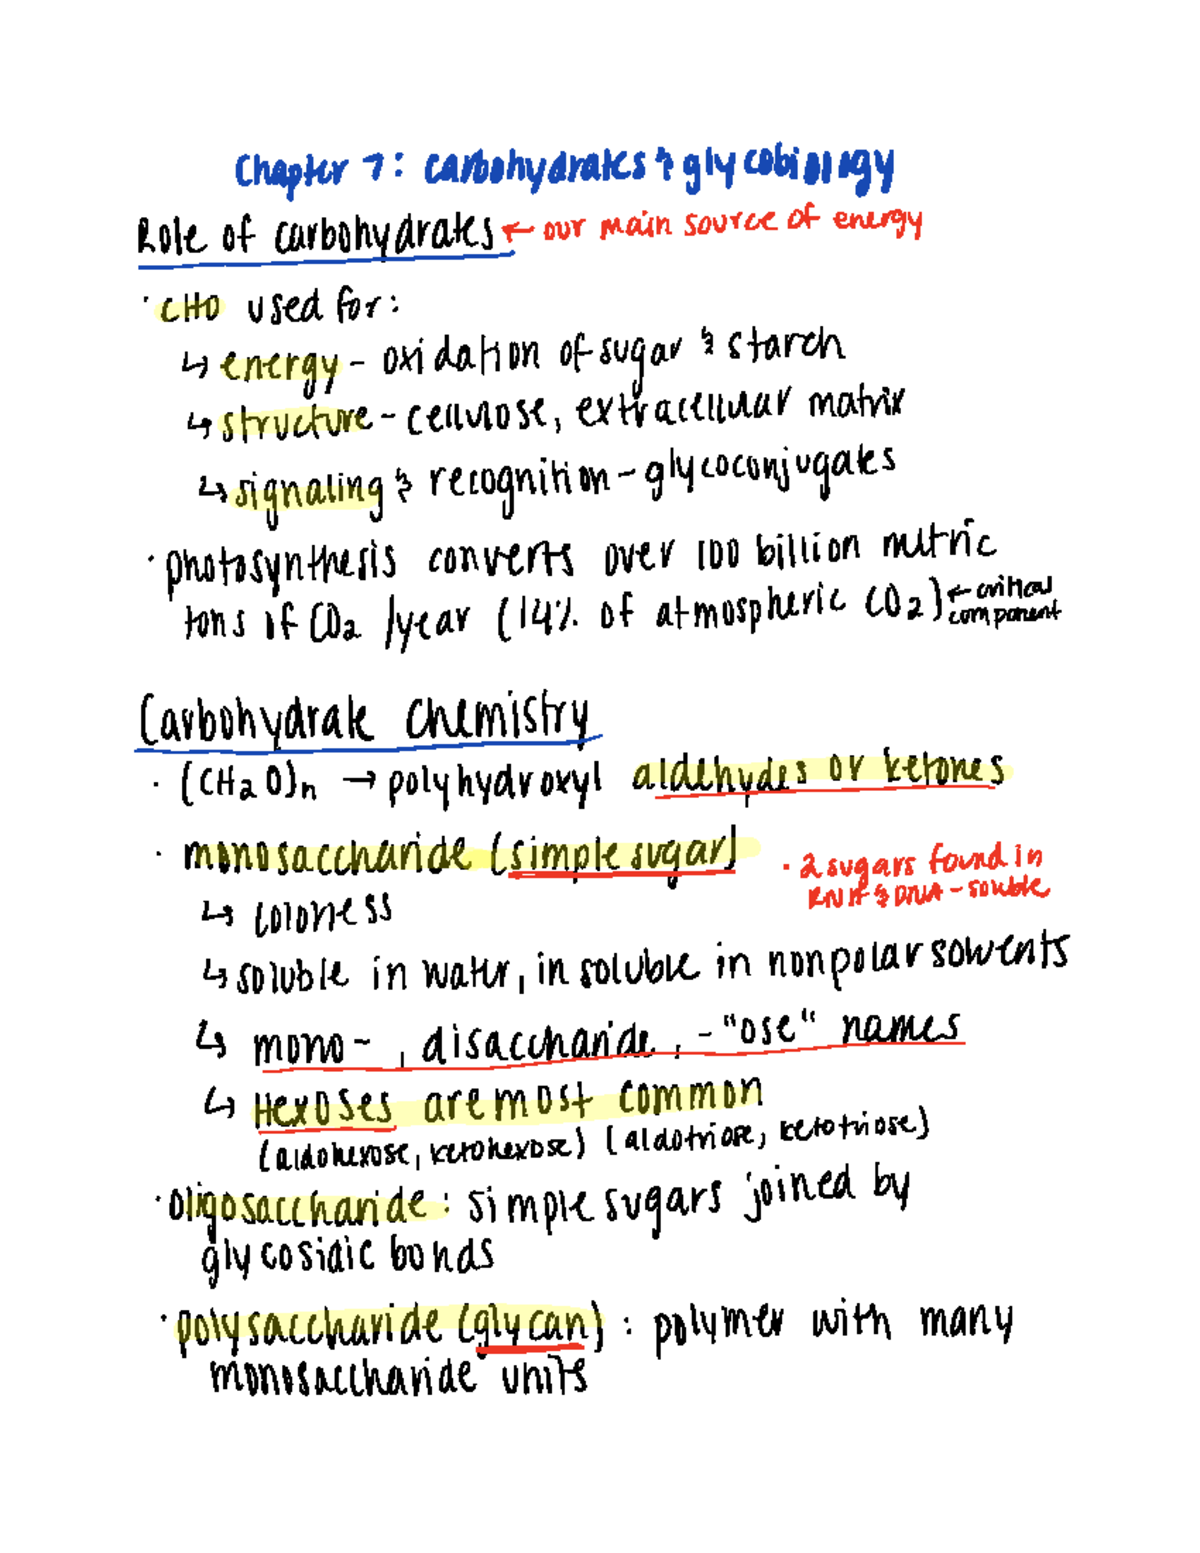 Chapter 7: carbohydrates & glycobiology
Role of carbohydrates ← our main source of energy
· CHO used for:
↳ energy - oxidation of sugar & starch
↳ structure - cellulose, extracellular matrix
↳ signaling & recognition - glycoconjugates
· photosynthesis converts over 100 billion metric
tons of CO2 /year (14% of atmospheric CO2) ← critical
component
Carbohydrate chemistry
· (CH2O)n → polyhydroxyl aldehydes or ketones
· monosaccharide (simple sugar)
· 2 sugars found in
RNA & DNA - soluble
↳ colorless
↳ soluble in water, insoluble in nonpolar solvents
↳ mono- , disaccharide, -"ose" names
↳ Hexoses are most common
(aldohexose, ketohexose) (aldotriose, ketotriose)
· oligosaccharide: simple sugars joined by
glycosidic bonds
· polysaccharide (glycan): polymer with many
monosaccharide units